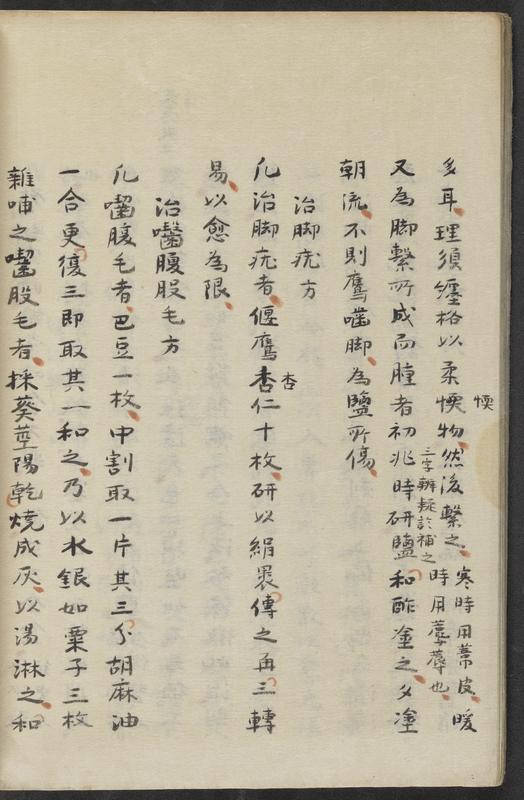 多耳理須纒格以柔愞物然後繫之寒時用葦皮暖時用蓴蓴也
愞
三字辨疑於補之
又為脚繫所成而腫者初兆時研鹽和酢塗之夕塗
朝流不則鷹噛脚為鹽所傷
治脚疣方
凡治脚疣者偃鷹杏仁十枚研以絹裹傅之再三轉
杏
易以愈為限
治噛腹股毛方
凡噛腹毛者巴豆一枚中割取一片其三分胡麻油
一合更復三即取其一和之乃以水銀如粟子三枚
雜哺之噛股毛者採葵莖陽乾燒成灰以湯淋之和